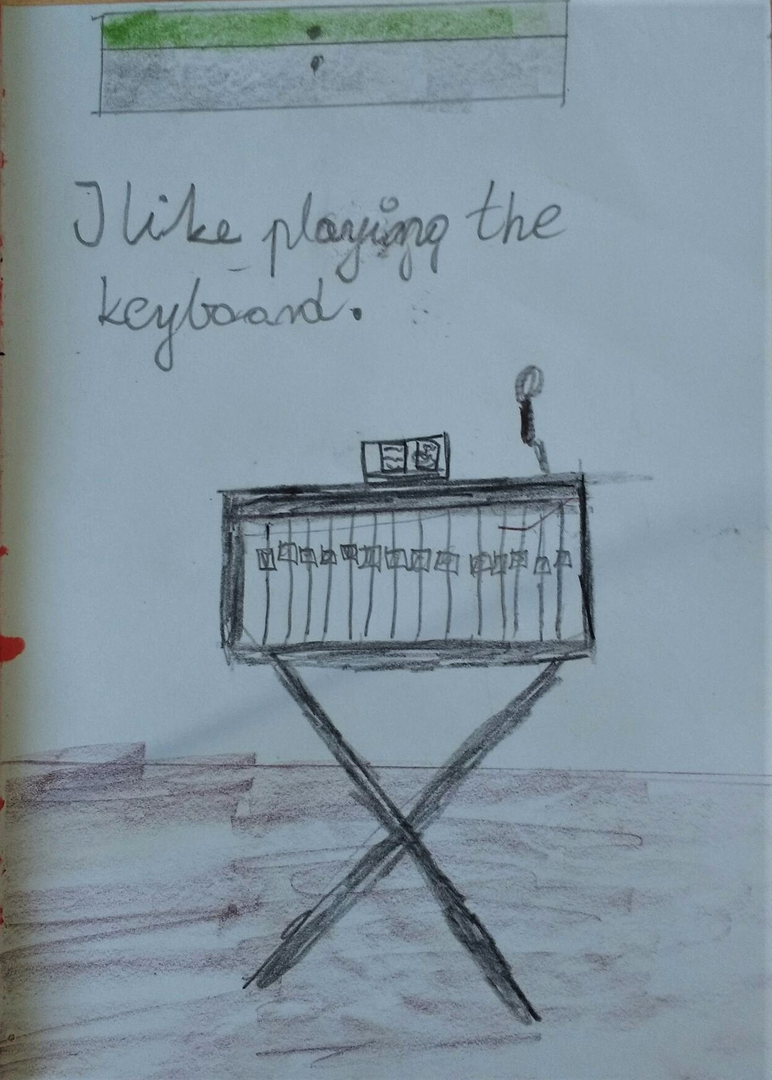 I like playing the
keyboard.